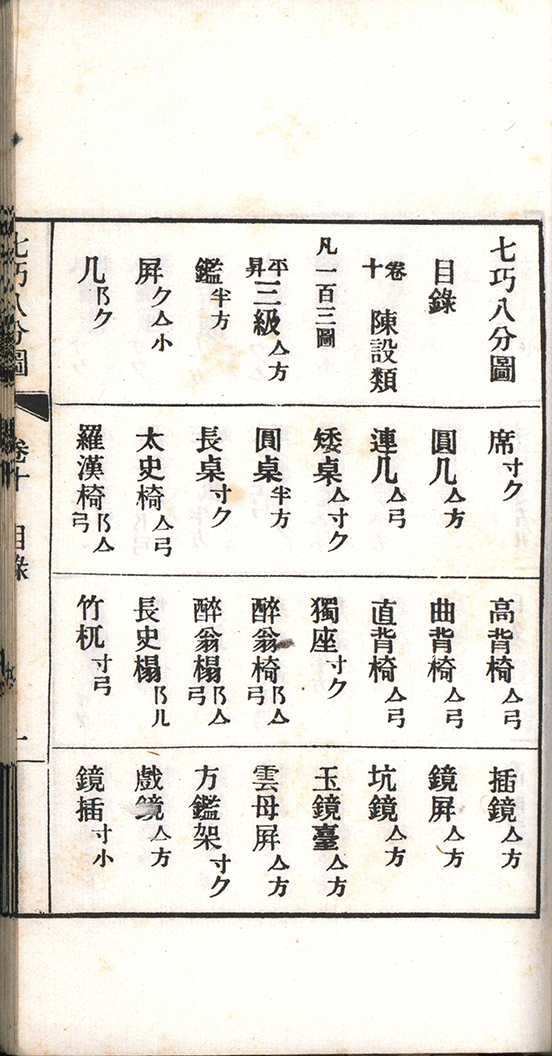 七巧八分圖
目錄
卷十 陳設類
凡一百三圖
平昇三級 亼方
鑑 半方
屛 ク亼小
几 阝ク
席 寸ク
圓几 亼方
連几 亼弓
矮桌 亼寸ク
圓桌 半方
長桌 寸ク
太史椅 亼弓
羅漢椅 阝亼弓
高背椅 亼弓
曲背椅 亼弓
直背椅 亼弓
獨座 寸ク
醉翁椅 阝亼弓
醉翁榻 阝亼弓
長史榻 阝儿
竹杌 寸弓
插鏡 亼方
鏡屛 亼方
坑鏡 亼方
玉鏡臺 亼方
雲母屛 亼方
方鑑架 寸ク
戲鏡 亼方
鏡插 寸小
七巧八分圖 卷十 目錄 一